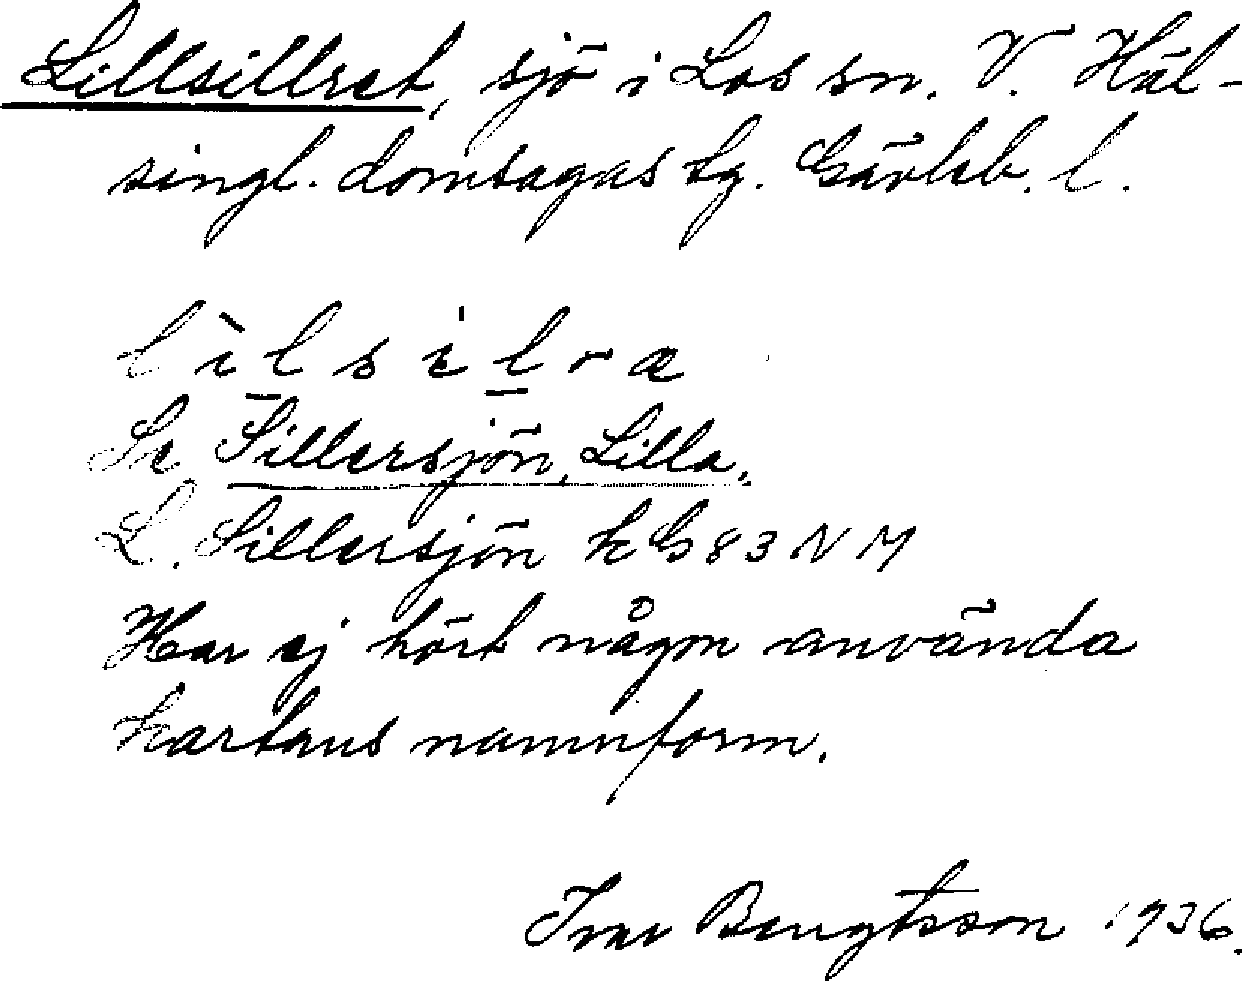 Lillsillret, sjö i Los sn. V. Häl-
singl. domsagas tg. Gävleb. l.
lìlsilræ
Se Sillersjön, Lilla.
L. Sillersjön k G 83 NM
Har ej hört någon använda
kartans namnform.
Ivar Bengtsson 1936.